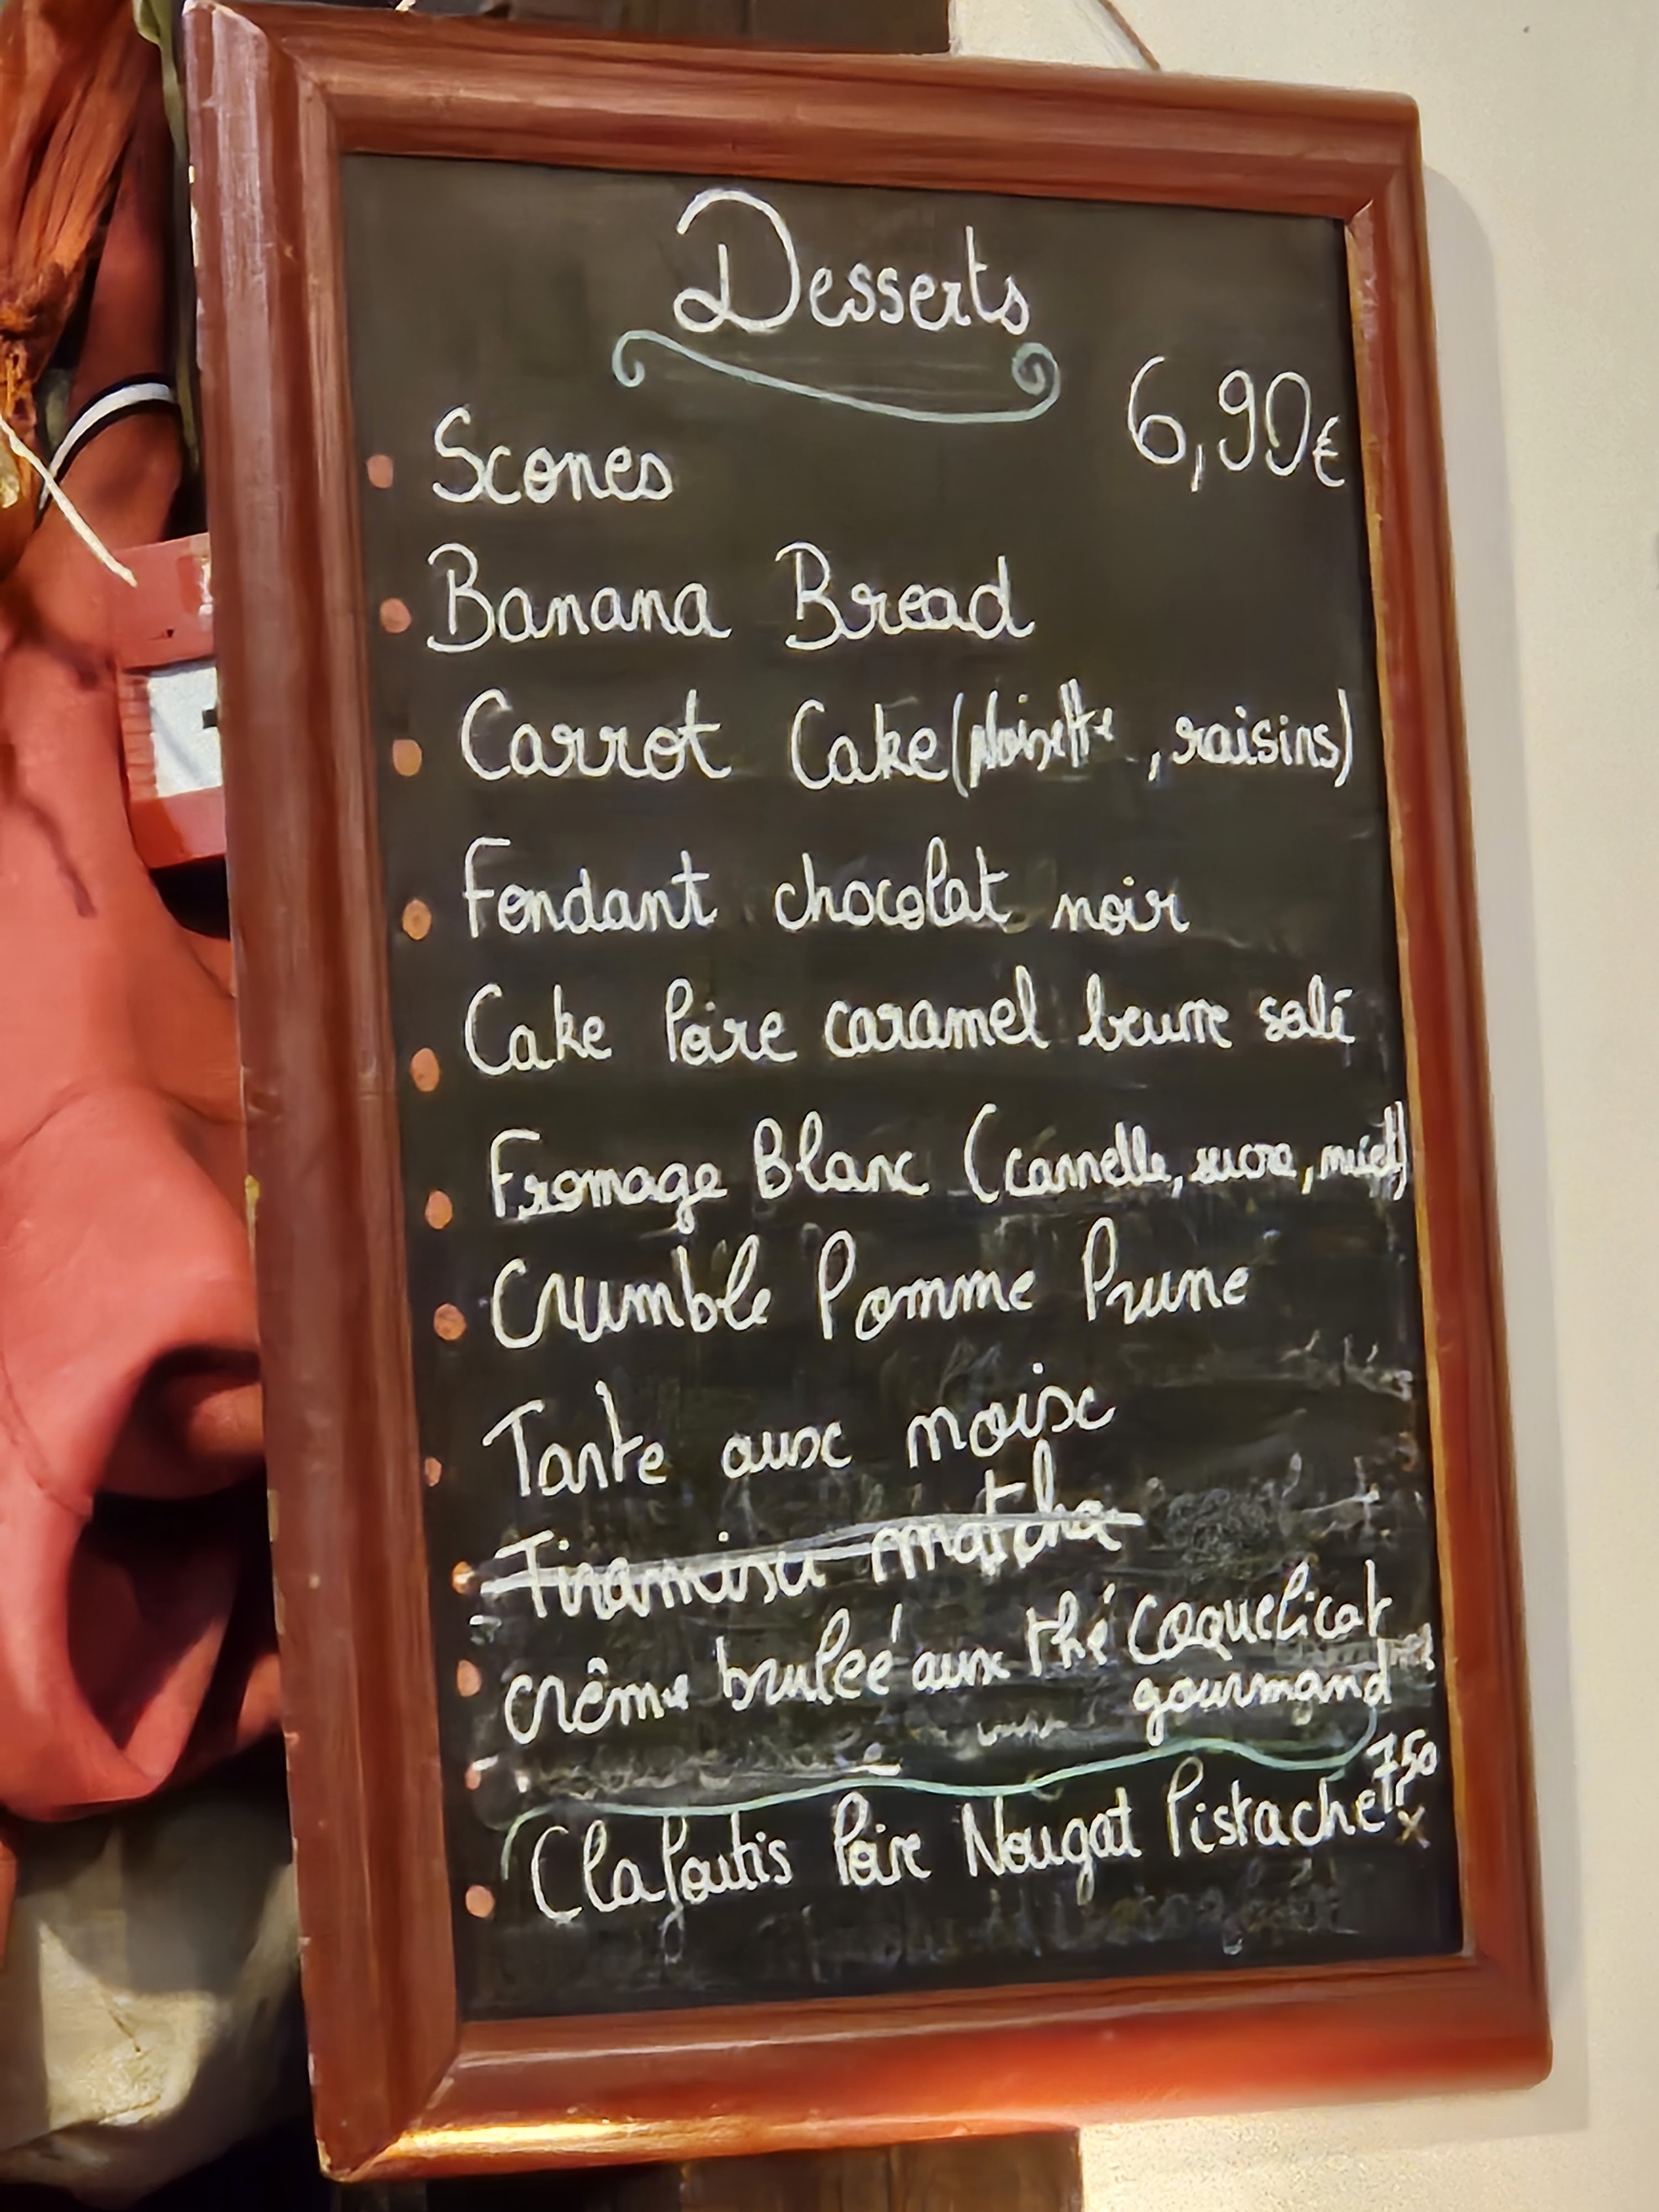 Desserts
6,90€
Scones
Banana Bread
Carrot Cake (Noisette, raisins)
Fondant chocolat noir
Cake Poire caramel beurre salé
Fromage Blanc (cannelle, sucre, miel)
Crumble Pomme Prune
Tarte aux noix
Tiramisu matcha
crème bruleé aux thé Coquelicot
gourmand
7,50
Clafoutis Poire Nougat Pistache